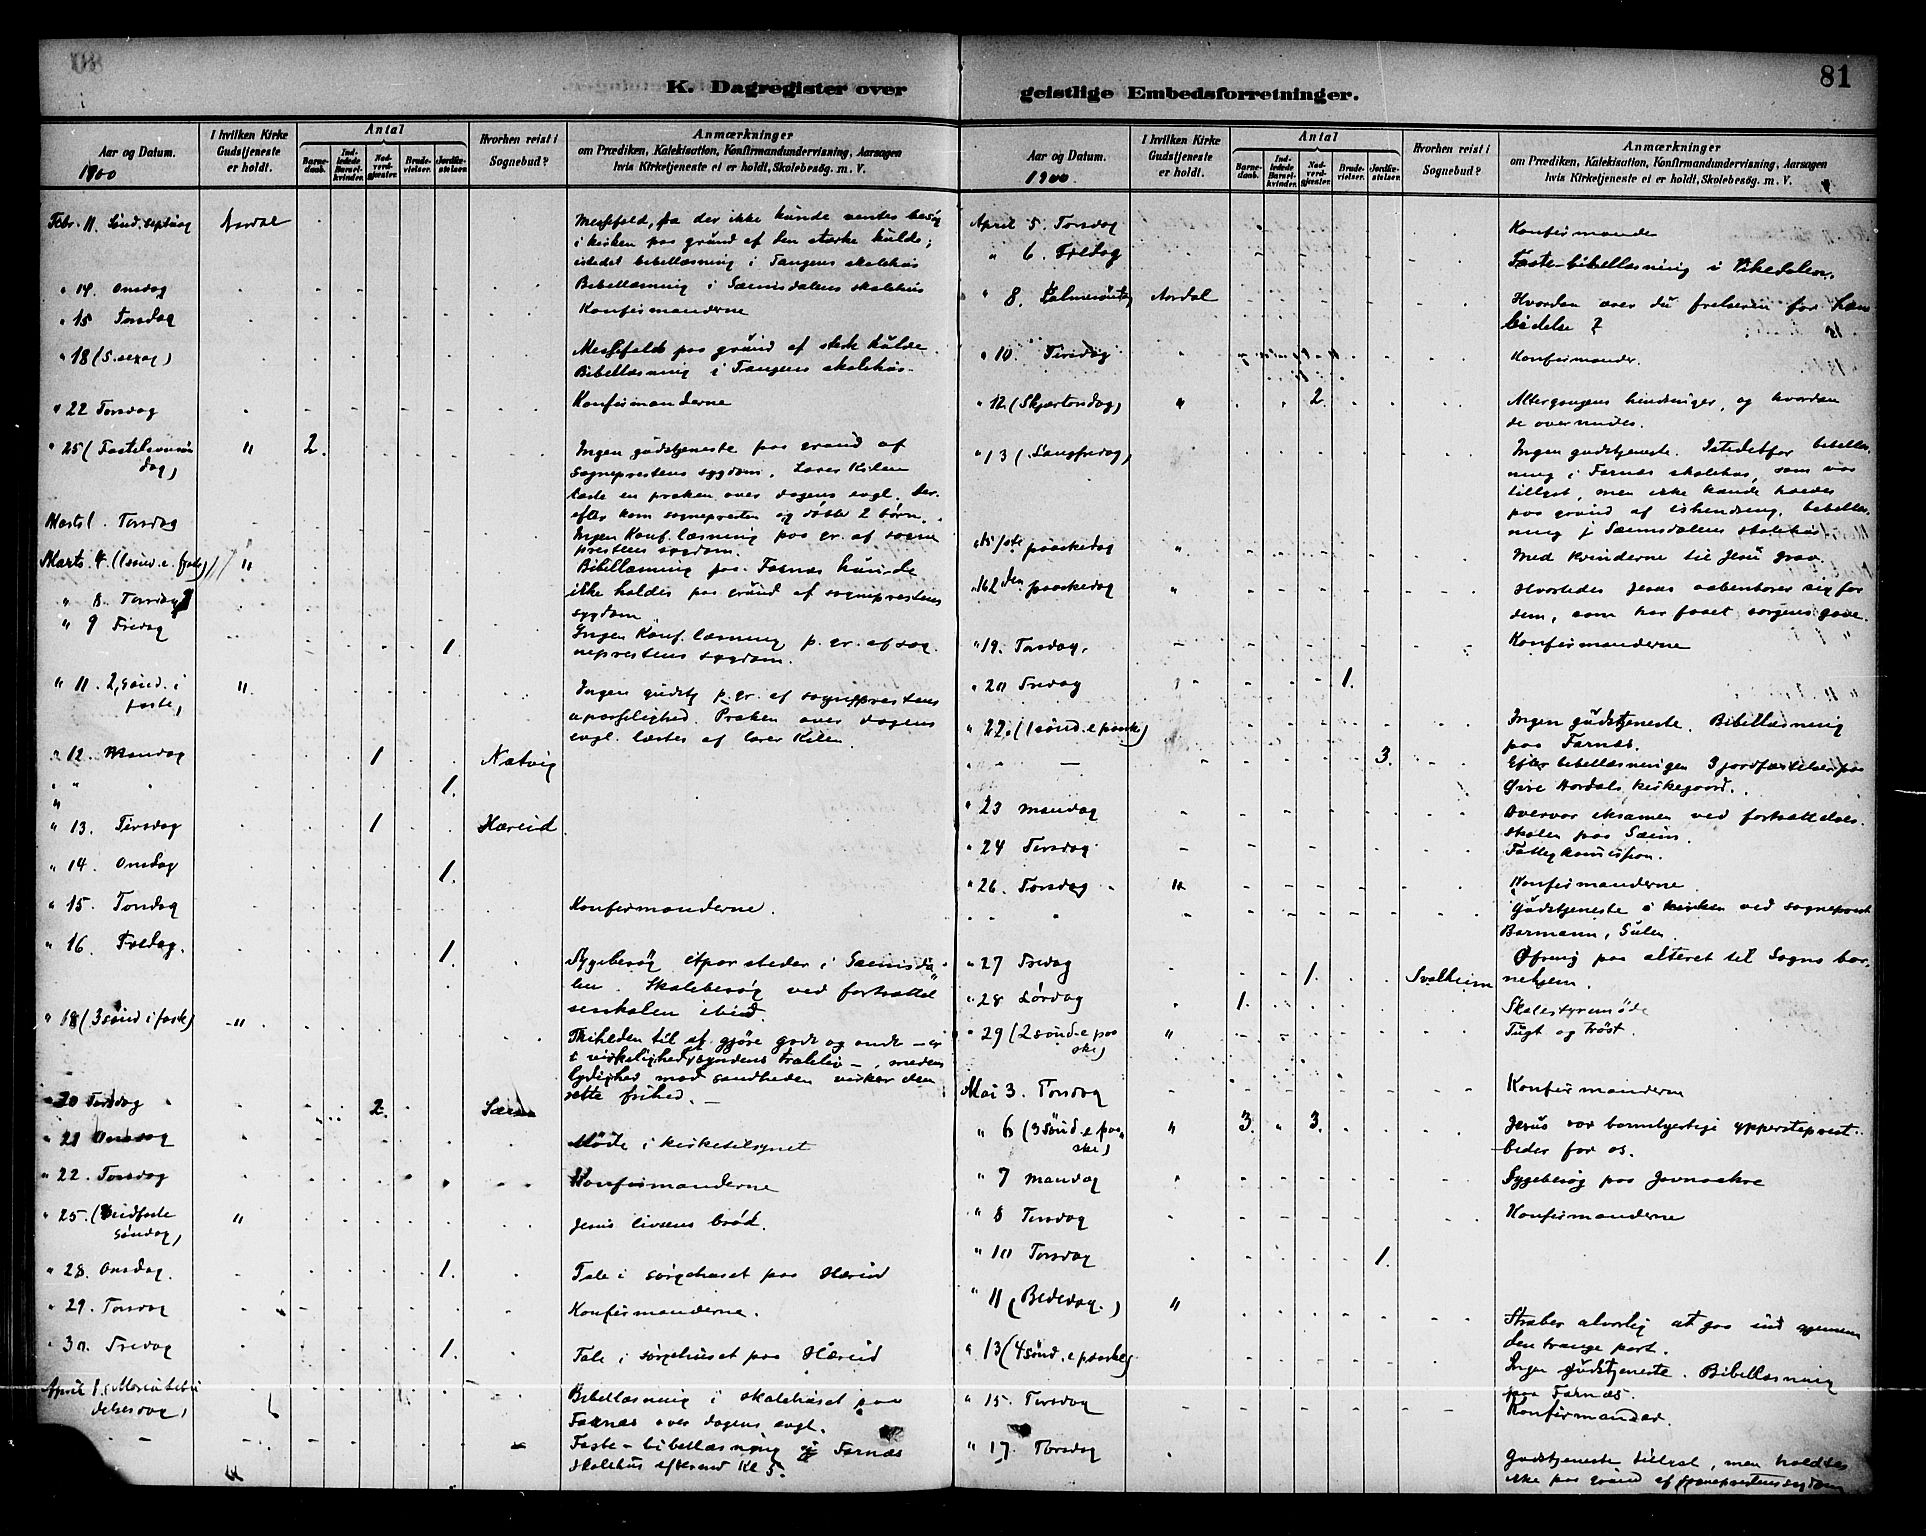 81
K. Dagregister over geistlige Embedsforretninger.
Aar og Datum.
1900
I hvilken Kirke Gudstjeneste er holdt.
Antal
Barnedaab.
Indledede Barselkvinder.
Nadverdgjester.
Brudevielser.
Jordfæstelser.
Hvorhen reist i Sognebud?
Anmærkninger
om Prædiken, Katekisation, Konfirmandundervisning, Aarsagen
hvis Kirketjeneste ei er holdt, Skolebesøg. m. V.
Febr. 11. Sønd. septuag Aardal Messefald, da der ikke kunde ventes besøg
i kirken paa grund af den stærke kulde;
istedet bibellæsning i Tangens skolehus
" 14. Onsdag Bibellæsning i Sæimsdalens skolehus
" 15 Torsdag Konfirmanderne
" 18 (S. sexag) Messefald paa grund af sterk kulde.
Bibellæsning i Tangens skolehus.
" 22 Torsdag Konfirmanderne
" 25 (Fastelavnssøndag) " 2. Ingen gudstjeneste paa grund af
sogneprestens sygdom. Lærer Kilen
læste en præken over dagens evgl. Derefter
kom sognepresten og døbte 2 børn.
Marts 1. Torsdag Ingen Konf. læsning paa gr. af sogneprestens
sygdom.
Marts 4 (1 sønd. e. faste) " Bibellæsning paa Farnæs kunde
ikke holdes paa grund af sogneprestens
sygdom
" 8. Torsdag Ingen Konf. læsning p. gr. af sogneprestens
sygdom.
" 9 Fredag 1.
" 11. 2. sønd. i faste, " Ingen gudstj. p. gr. af sogneprestens
upasselighed. Præken over dagens
evgl. læstes af lærer Kilen.
" 12. Mandag 1 Natvig
" " 1.
" 13. Tirsdag 1 Hæreid
" 14. Onsdag 1.
" 15. Torsdag Konfirmanderne.
" 16. Fredag. 1. Sygebesøg etpar steder i Sæimsdalen.
Skolebesøg ved fortsættelsesskolen
ibid.
" 18 (3 sønd i faste) " Friheden til at gjøre godt og ondt – er
i virkelighed syndens træleliv –, medens
lydighed mod sandheden virker den
rette frihed. –
" 20 Tirsdag 2. Sæim
" 21 Onsdag Møde i kirketilsynet
" 22. Torsdag Konfirmanderne
" 25. (Midfaste søndag) " Jesus livsens brød.
" 28. Onsdag. 1. Tale i sørgehuset paa Hæreid
" 29. Torsdag Konfirmanderne.
" 30. Fredag 1. Tale i sørgehuset paa Hæreid
April 1. (Maria bebudelsesdag) Bibellæsning i skolehuset paa
Farnæs over dagens evgl.
– Faste-bibellæsning i Farnæs
skolehus efterm. Kl 5.
Aar og Datum.
1900.
I hvilken Kirke Gudstjeneste er holdt.
Antal
Barnedaab.
Indledede Barselkvinder.
Nadverdgjester.
Brudevielser.
Jordfæstelser.
Hvorhen reist i Sognebud?
Anmærkninger
om Prædiken, Katekisation, Konfirmandundervisning, Aarsagen
hvis Kirketjeneste ei er holdt, Skolebesøg. m. V.
April 5. Torsdag Konfirmander
" 6. Fredag Faste-bibellæsning i Vikedalen.
" 8. Palmesøndag Aardal Hvordan ærer du frelseren for hans
lidelse?
" 10. Tirsdag Konfirmander.
" 12 (Skjærtorsdag) " 2. Altergangens hindringer, og hvordan
de overvindes.
" 13 (Langfredag) Ingen gudstjeneste. Istedetfor bibellæsning
i Farnæs skolehus, som var
tillyst, men ikke kunde holdes
paa grund af ishindring, bibellæsning
i Sæimsdalens skolehus.
" 15 1ste paaskedag " Med kvinderne til Jesu grav.
" 16 2den paaskedag " Hvorledes Jesus aabenbarer sig for
dem, som har faaet sorgens gave.
" 19. Torsdag. Konfirmanderne
" 20 Fredag 1.
" 22. (1 sønd. e paaske) Ingen gudstjeneste. Bibellæsning
paa Farnæs.
" – 3. Efter bibellæsningen 3 jordfæstelser paa
Øvre Aardals kirkegaard.
" 23 Mandag Overvar eksamen ved fortsættelsesskolen
paa Sæim.
" 24 Tirsdag Fattigkommission.
" 26. Torsdag " Konfirmanderne.
Gudstjeneste i kirken ved sogneprest
Barmann, Gulen.
Ofring paa alteret til Sogns barnehjem.
" 27 Fredag 1. Svalheim
" 28 Lørdag 1. Skolestyremøde
" 29 (2 sønd. e paaske) " Tugt og trøst.
Mai 3. Torsdag Konfirmanderne
" 6 (3 sønd. e paaske) " 3. 3. Jesus vor barmhjertige ypperstepræst
beder for os.
" 7 Mandag Sygebesøg paa
" 8 Tirsdag Konfirmanderne
" 10 Torsdag 1.
" 11 (Bededag.) " Stræber alvorlig at gaa ind gjennem
den trange port.
" 13 (4 sønd. e paaske) Ingen gudstjeneste. Bibellæsning
paa Farnæs.
" 15. Tirsdag Konfirmander.
" 17. Torsdag Gudstjeneste tillyst, men holdtes
ikke paa grund af sogneprestens sygdom